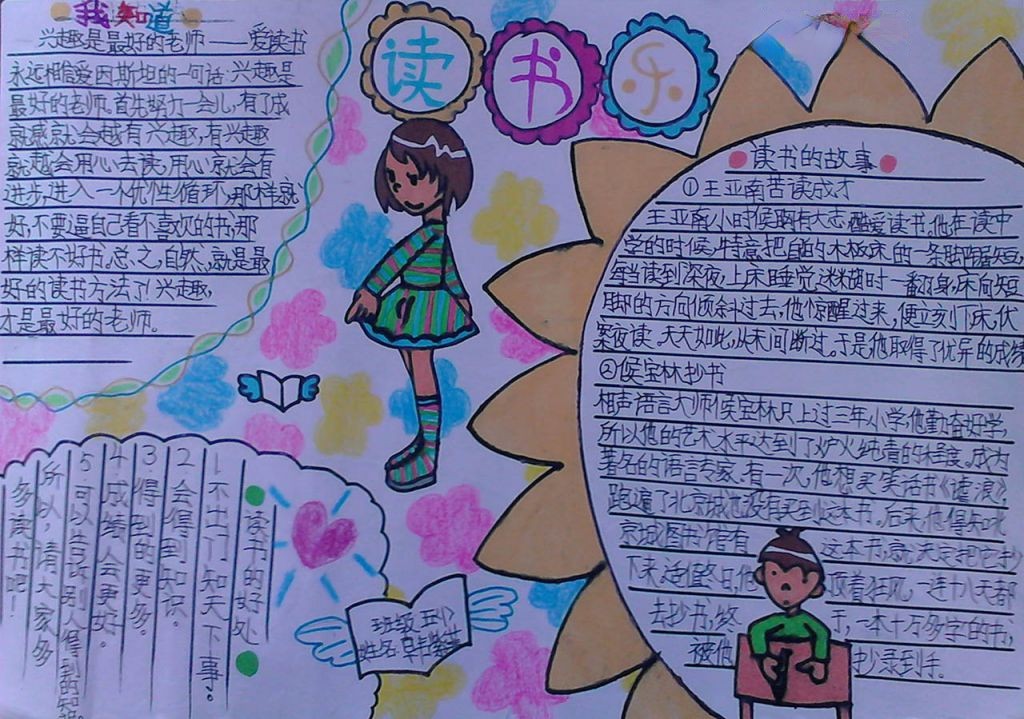 我知道
兴趣是最好的老师——爱读书
永远相信爱因斯坦的一句话:兴趣是
最好的老师。首先努力一会儿,有了成
就感就会越有兴趣,有兴趣
就越会用心去读,用心就会有
进步,进入一个优性循环,那样就
好,不要逼自己看不喜欢的书,那
样读不好书。总之,自然、就是最
好的读书方法了!兴趣,
才是最好的老师。
读书乐
读书的故事
①王亚南苦读成才
王亚南小时候胸有大志,酷爱读书。他在读中
学的时候,特意把自的木板床的一条脚锯短,
每当读到深夜,上床睡觉迷糊时一翻身,床向短
脚的方向倾斜过去,他惊醒过来,便立刻下床,伏
案夜读。天天如此,从未间断过。于是他取得了优异的成绩
②侯宝林抄书
相声语言大师侯宝林只上过三年小学,他勤奋好学,
所以他的艺术水平达到了炉火纯清的程度,成为
著名的语言专家。有一次,他想买笑话书《谑浪》,
跑遍了北京城也没有买到这本书。后来,他得知北
京城图书馆有这本书,就决定把它抄
下来,适值冬日,他顶着狂风,一连十八天都
去抄书,终于,一本十万多字的书,
被他抄录到手。
读书的好处
1不出门知天下事。
2会得到知识。
3得到的更多。
4成绩会更好。
5可以告诉别人得到的知识。
所以,请大家多
多读书吧!
班级:五(1)
姓名: